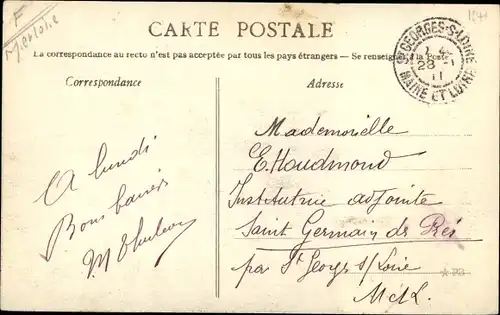 CARTE POSTALE
La correspondance au recto n'est pas acceptée par tous les pays étrangers — Se renseigner à la Poste
Correspondance
Adresse
ST GEORGES-S-LOIRE
28 -1
11
MAINE ET LOIRE
A lundi
Bons baisers
Mademoiselle
E. Houdmond
Institutrice adjointe
Saint Germain des Prés
par St Georges s/ Loire
M et L.